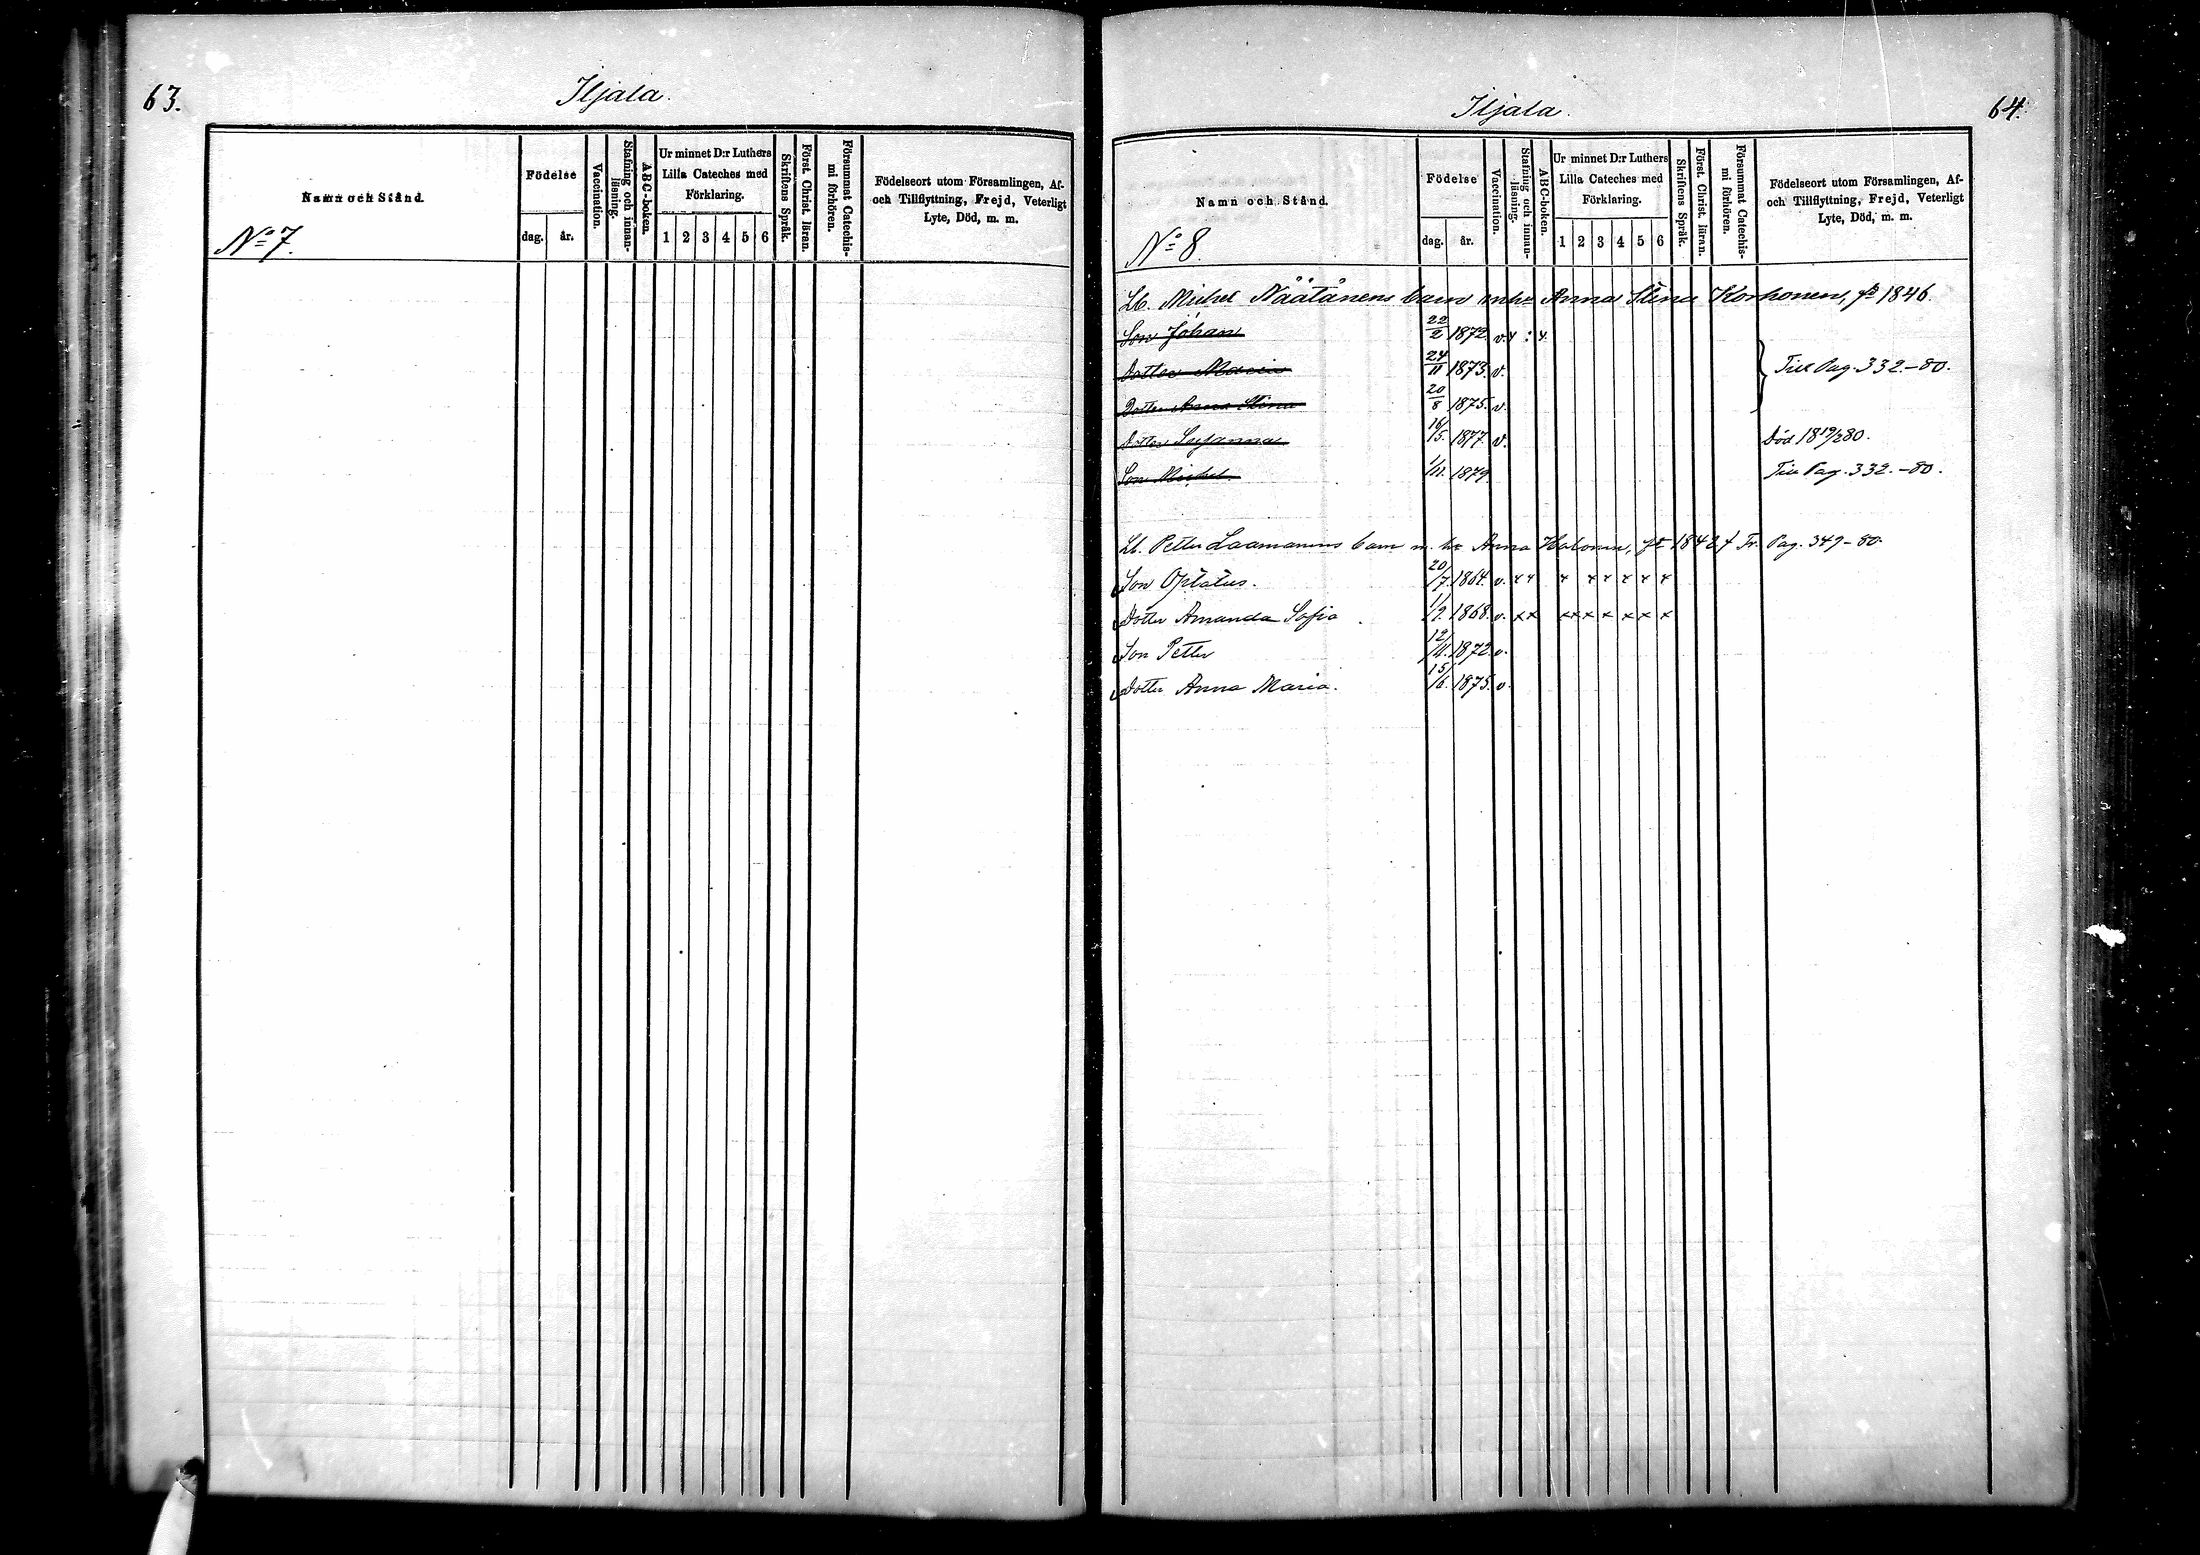 63.
Iljala.
Namn och Stånd
Födelse
dag. år.
Vaccination.
Stafning och innan-
läsning.
ABC-boken.
Ur minnet D:r Luthers
Lilla Cateches med
Förklaring.
1 2 3 4 5 6
Skriftens Språk.
Först. Christ. läran.
Försummat Catechis-
mi förhören.
Födelseort utom Församlingen, Af-
och Tillflyttning, Frejd, Veterligt
Lyte, Död, m. m.
No 7.
Iljala.
64.
Namn och Stånd.
Födelse
dag. år.
Vaccination.
Stafning och innan-
läsning.
ABC-boken.
Ur minnet D:r Luthers
Lilla Cateches med
Förklaring.
1 2 3 4 5 6
Skriftens Språk.
Först. Christ. läran.
Försummat Catechis-
mi förhören.
Födelseort utom Församlingen, Af-
och Tillflyttning, Frejd, Veterligt
Lyte, Död, m. m.
No 8.
Lb. Michel Näätänens barn m hu Anna Stina Korhonen, 1846.
Son Johan 22/2 1872 v.
Dotter Maria 24/11 1873. v. Till Pag. 332.-80.
Dotter Anna Stina 20/8 1875. v.
Dotter Susanna 16/5. 1877. v. Död 18 19/2 80.
Son Michel. 1/11. 1879. Till Pag. 332.-80.
Lb. Petter Laamanens barn m. hu Anna Halonen, 1842 Fr. Pag. 349-80.
Son Optatus. 20/7. 1864. v.
Dotter Amanda Sofia 11/9. 1868. v. x x x x x x x x x
Son Petter 12/11. 1872. v.
Dotter Anna Maria. 15/6. 1875. v.